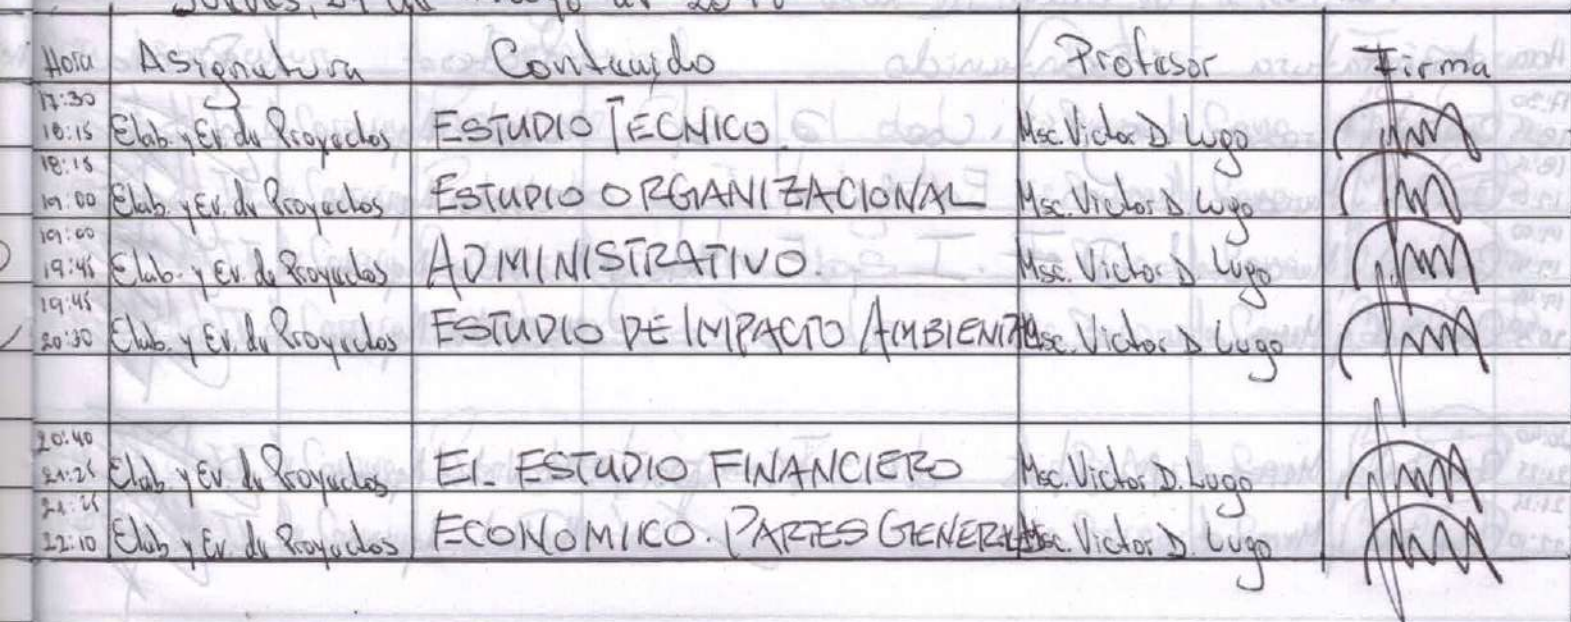 Hora Asignatura Contenido Profesor Firma
17:30
18:15 Elab. y Ev. de Proyectos ESTUDIO TECNICO. Msc. Victor D. Lugo
18:15
19:00 Elab. y Ev. de Proyectos ESTUDIO ORGANIZACIONAL Msc. Victor D. Lugo
19:00
19:45 Elab. y Ev. de Proyectos ADMINISTRATIVO. Msc. Victor D. Lugo
19:45
20:30 Elab. y Ev. de Proyectos ESTUDIO DE IMPACTO AMBIENTAL Msc. Victor D. Lugo
20:40
21:25 Elab. y Ev. de Proyectos EL ESTUDIO FINANCIERO Msc. Victor D. Lugo
21:25
22:10 Elab. y Ev. de Proyectos ECONOMICO. PARTES GENERALES Msc. Victor D. Lugo